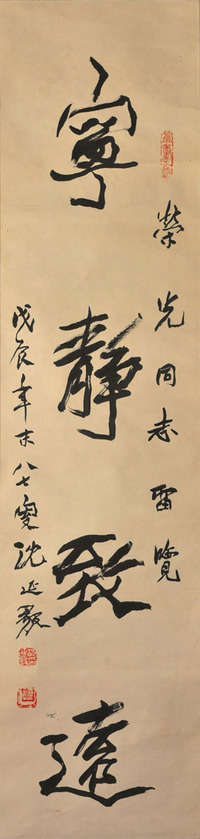 榮光同志留覽
寧靜致遠
戊辰年末八七叟沈延毅